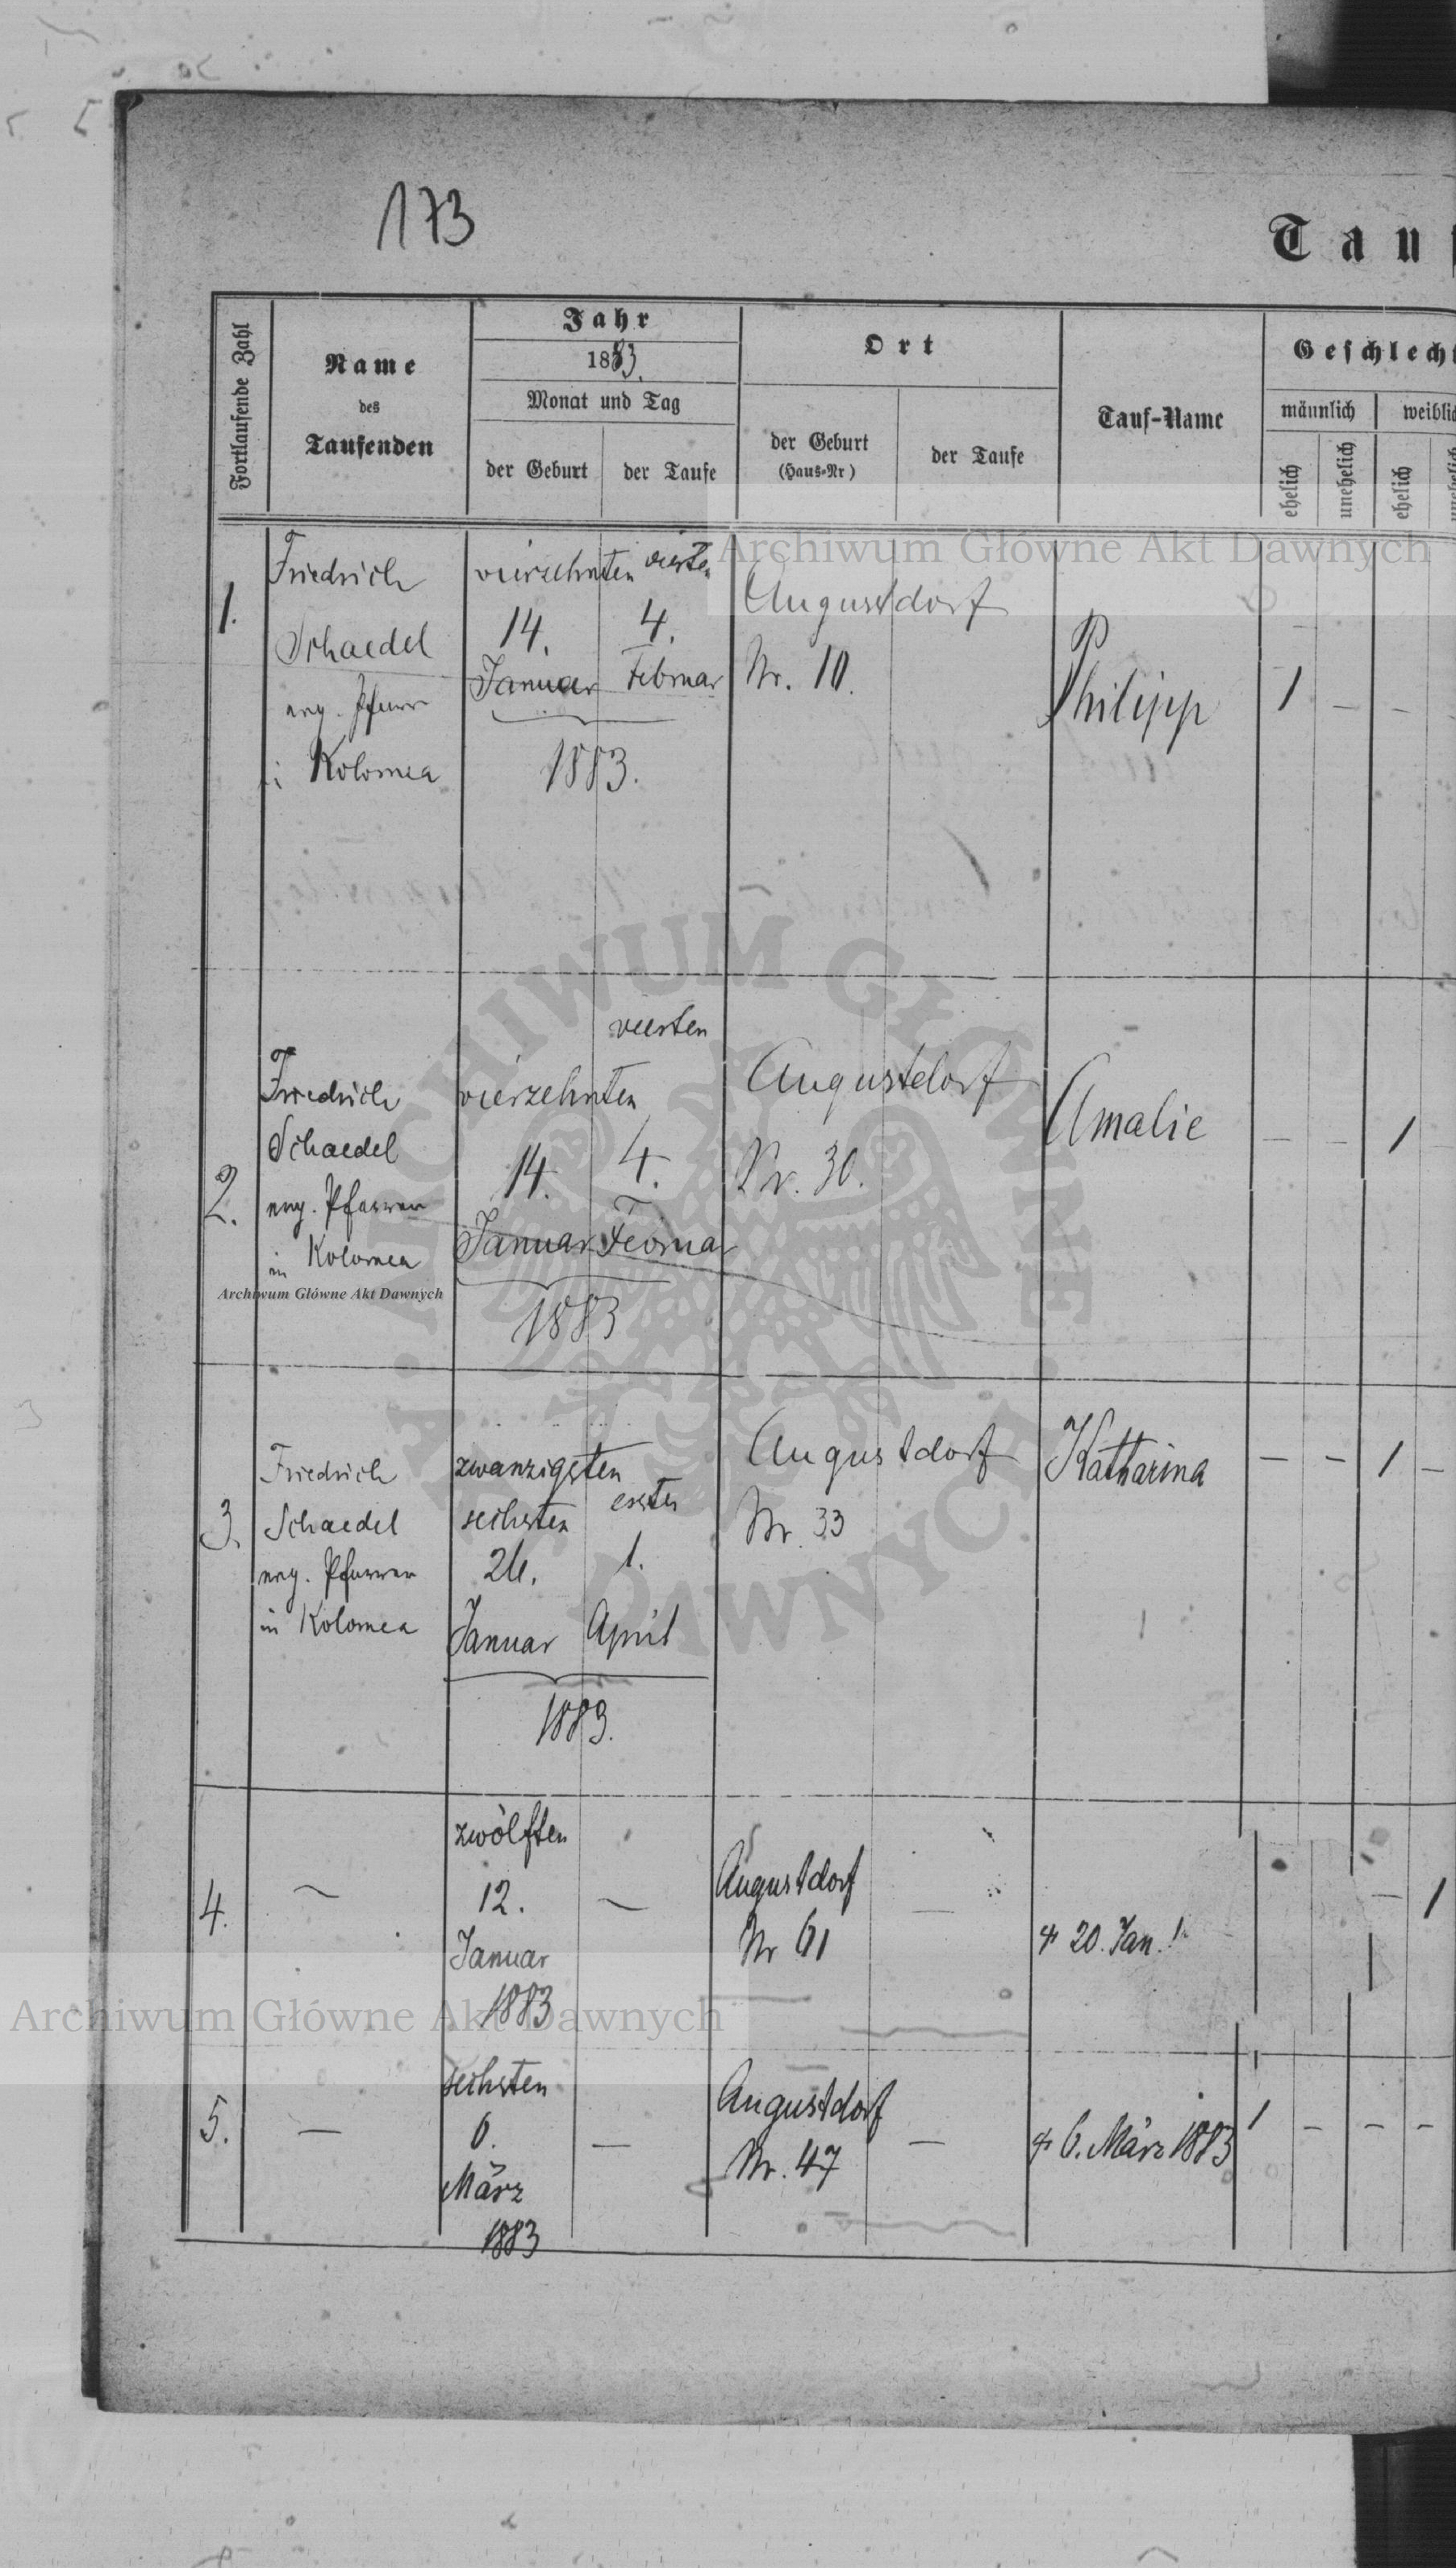 173
Tauf
Fortlaufende Zahl
Name
des
Taufenden
Jahr
1883.
Monat und Tag
der Geburt
der Taufe
Ort
der Geburt
(Haus-Nr)
der Taufe
Tauf-Name
Geschlecht
männlich
weiblich
ehelich
unehelich
ehelich
unehelich
Archiwum Główne Akt Dawnych
1.
Friedrich
Schaedel
evg. Pfarrer
in Kolomea
vierzehnten
14.
Januar
vierten
4.
Februar
1883.
Augustdorf
Nr. 10.
Philipp
1 – –
2.
Friedrich
Schaedel
evg. Pfarrer
in Kolomea
vierzehnten
14.
Januar
vierten
4.
Februar
1883
Augustdorf
Nr. 30.
Amalie
– – 1
Archiwum Główne Akt Dawnych
ARCHIWUM GŁÓWNE AKT DAWNYCH
3.
Friedrich
Schaedel
evg. Pfarrer
in Kolomea
zwanzigsten
sechsten
26.
Januar
ersten
1.
April
1883.
Augustdorf
Nr. 33
Katharina
– – 1 –
4.
–
zwölften
12.
Januar
1883
–
Augustdorf
Nr 61
–
+ 20. Jan.!
– 1
Archiwum Główne Akt Dawnych
5.
–
sechsten
6.
März
1883
–
Augustdorf
Nr. 47
–
+ 6. März 1883
1 – – –